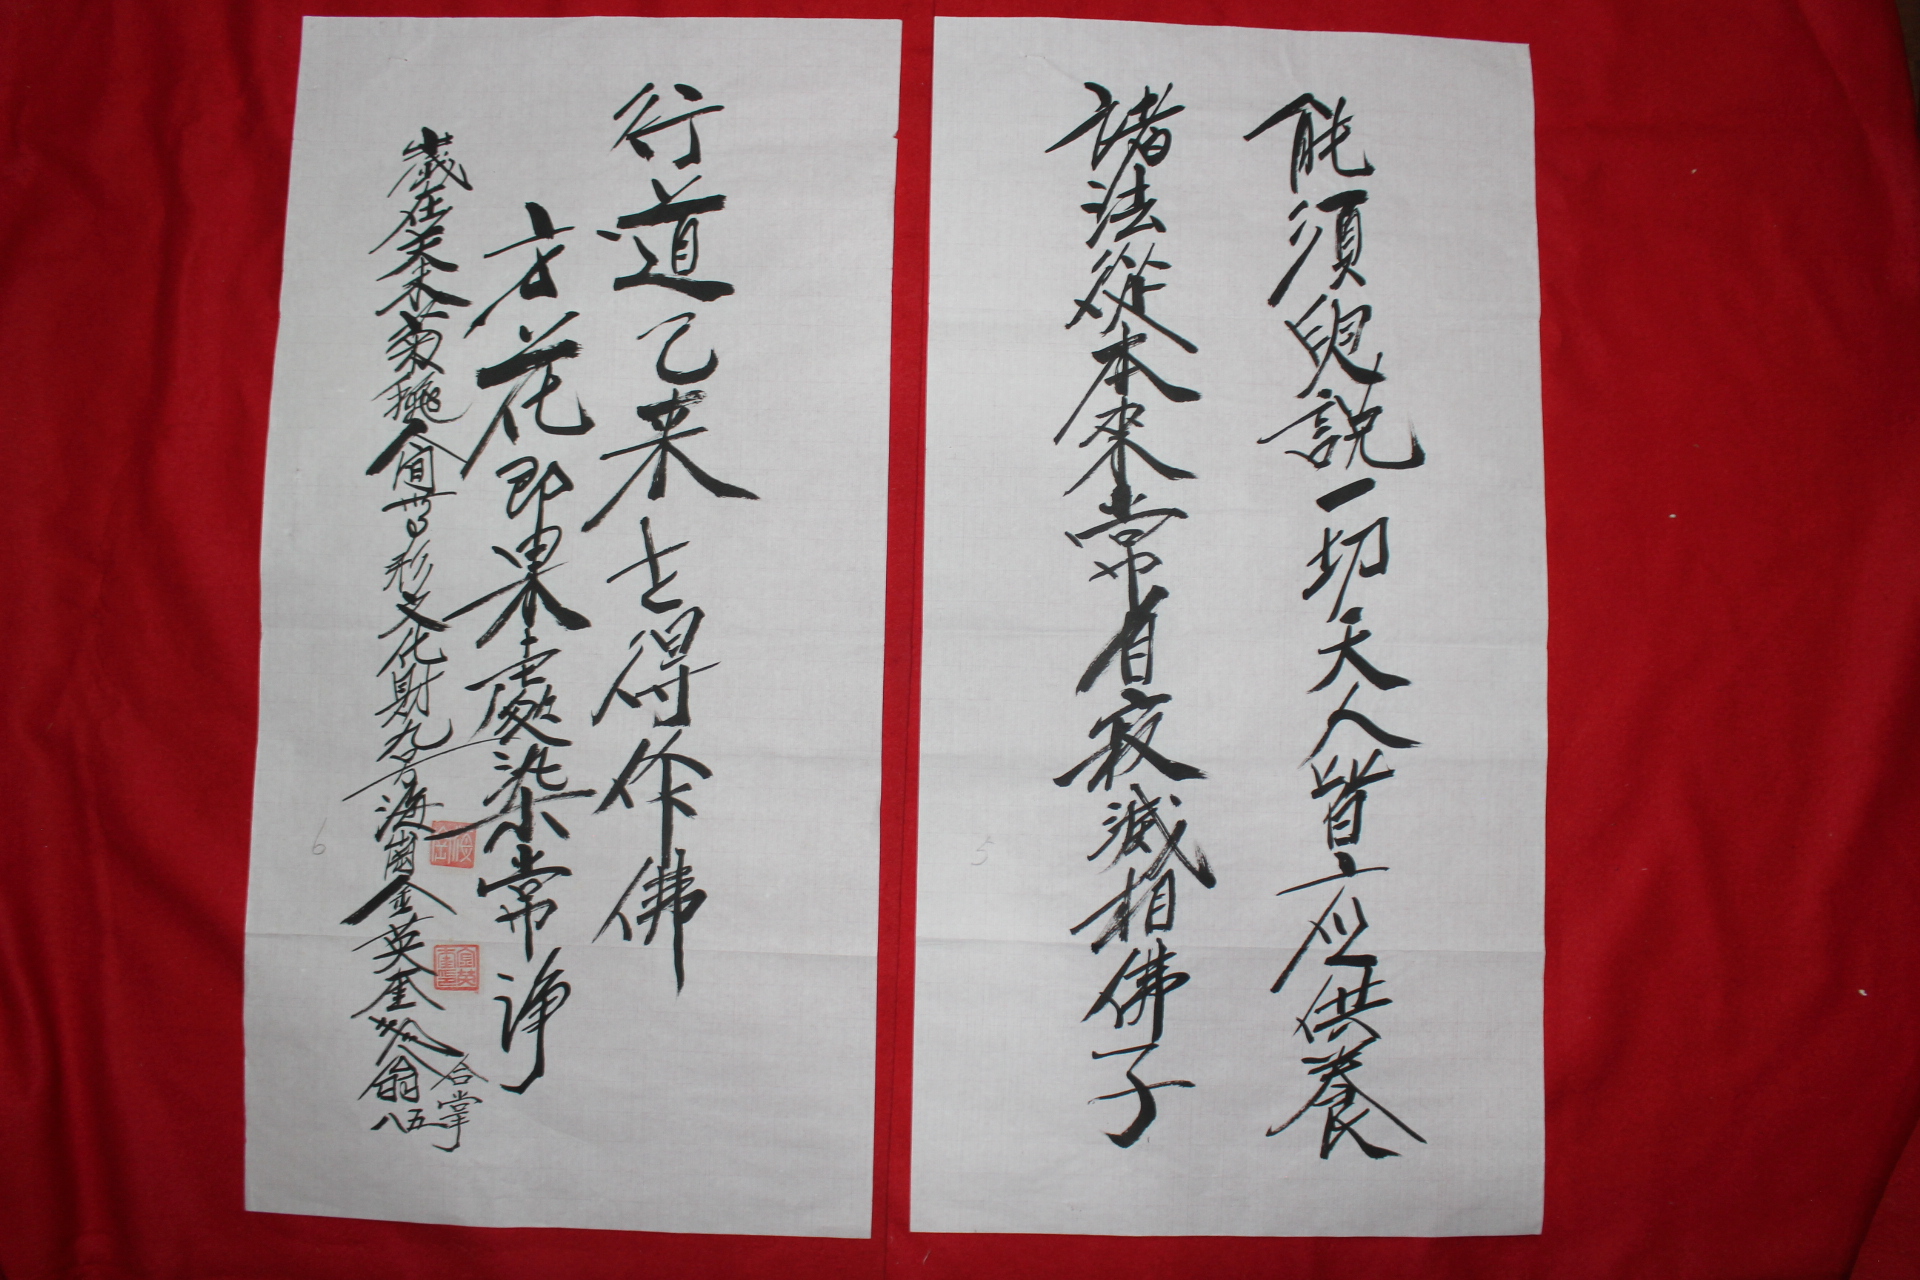 能須臾說一切天人皆應供養
諸法從本來常自寂滅相佛子
5
行道已来世得作佛
方花即果處染常淨
歲在癸未菊秋人間形文化財海崗金英奎翁八五
合掌
6